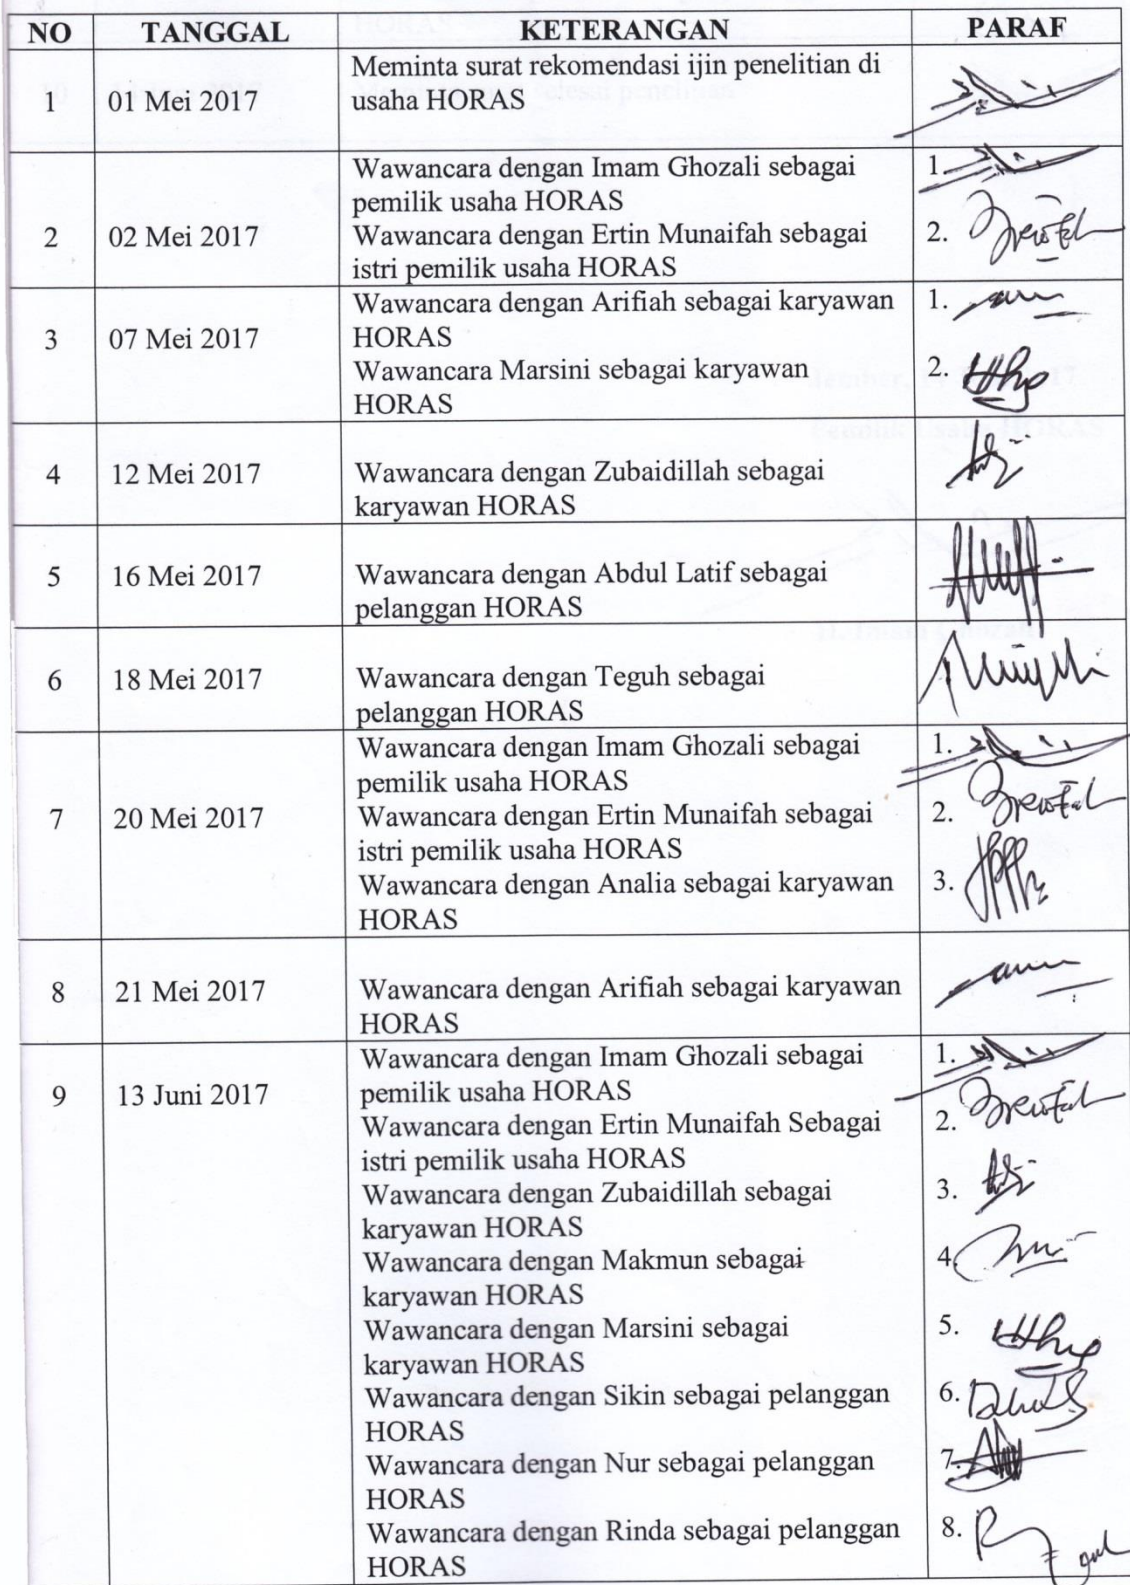 NO TANGGAL KETERANGAN PARAF
1 01 Mei 2017 Meminta surat rekomendasi ijin penelitian di
usaha HORAS
2 02 Mei 2017 Wawancara dengan Imam Ghozali sebagai 1.
pemilik usaha HORAS
Wawancara dengan Ertin Munaifah sebagai 2.
istri pemilik usaha HORAS
3 07 Mei 2017 Wawancara dengan Arifiah sebagai karyawan 1.
HORAS
Wawancara Marsini sebagai karyawan 2.
HORAS
4 12 Mei 2017 Wawancara dengan Zubaidillah sebagai
karyawan HORAS
5 16 Mei 2017 Wawancara dengan Abdul Latif sebagai
pelanggan HORAS
6 18 Mei 2017 Wawancara dengan Teguh sebagai
pelanggan HORAS
7 20 Mei 2017 Wawancara dengan Imam Ghozali sebagai 1.
pemilik usaha HORAS
Wawancara dengan Ertin Munaifah sebagai 2.
istri pemilik usaha HORAS
Wawancara dengan Analia sebagai karyawan 3.
HORAS
8 21 Mei 2017 Wawancara dengan Arifiah sebagai karyawan
HORAS
9 13 Juni 2017 Wawancara dengan Imam Ghozali sebagai 1.
pemilik usaha HORAS
Wawancara dengan Ertin Munaifah Sebagai 2.
istri pemilik usaha HORAS
Wawancara dengan Zubaidillah sebagai 3.
karyawan HORAS
Wawancara dengan Makmun sebagai 4.
karyawan HORAS
Wawancara dengan Marsini sebagai 5.
karyawan HORAS
Wawancara dengan Sikin sebagai pelanggan 6.
HORAS
Wawancara dengan Nur sebagai pelanggan 7.
HORAS
Wawancara dengan Rinda sebagai pelanggan 8.
HORAS